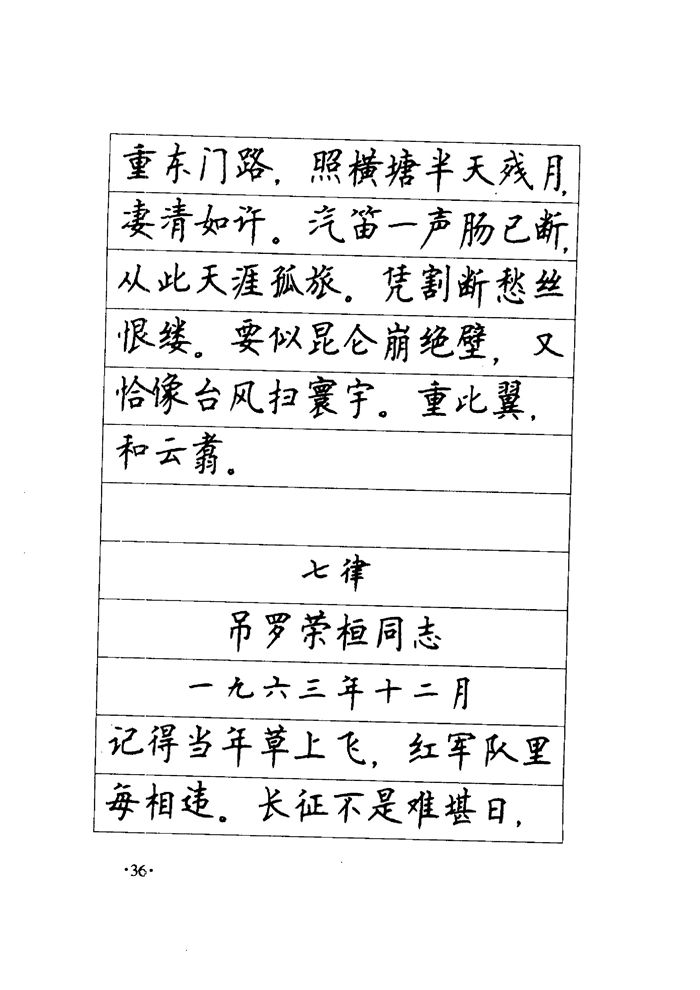 重东门路，照横塘半天残月，
凄清如许。汽笛一声肠已断，
从此天涯孤旅。凭割断愁丝
恨缕。要似昆仑崩绝壁，又
恰像台风扫寰宇。重比翼，
和云翥。
七律
吊罗荣桓同志
一九六三年十二月
记得当年草上飞，红军队里
每相违。长征不是难堪日，
·36·